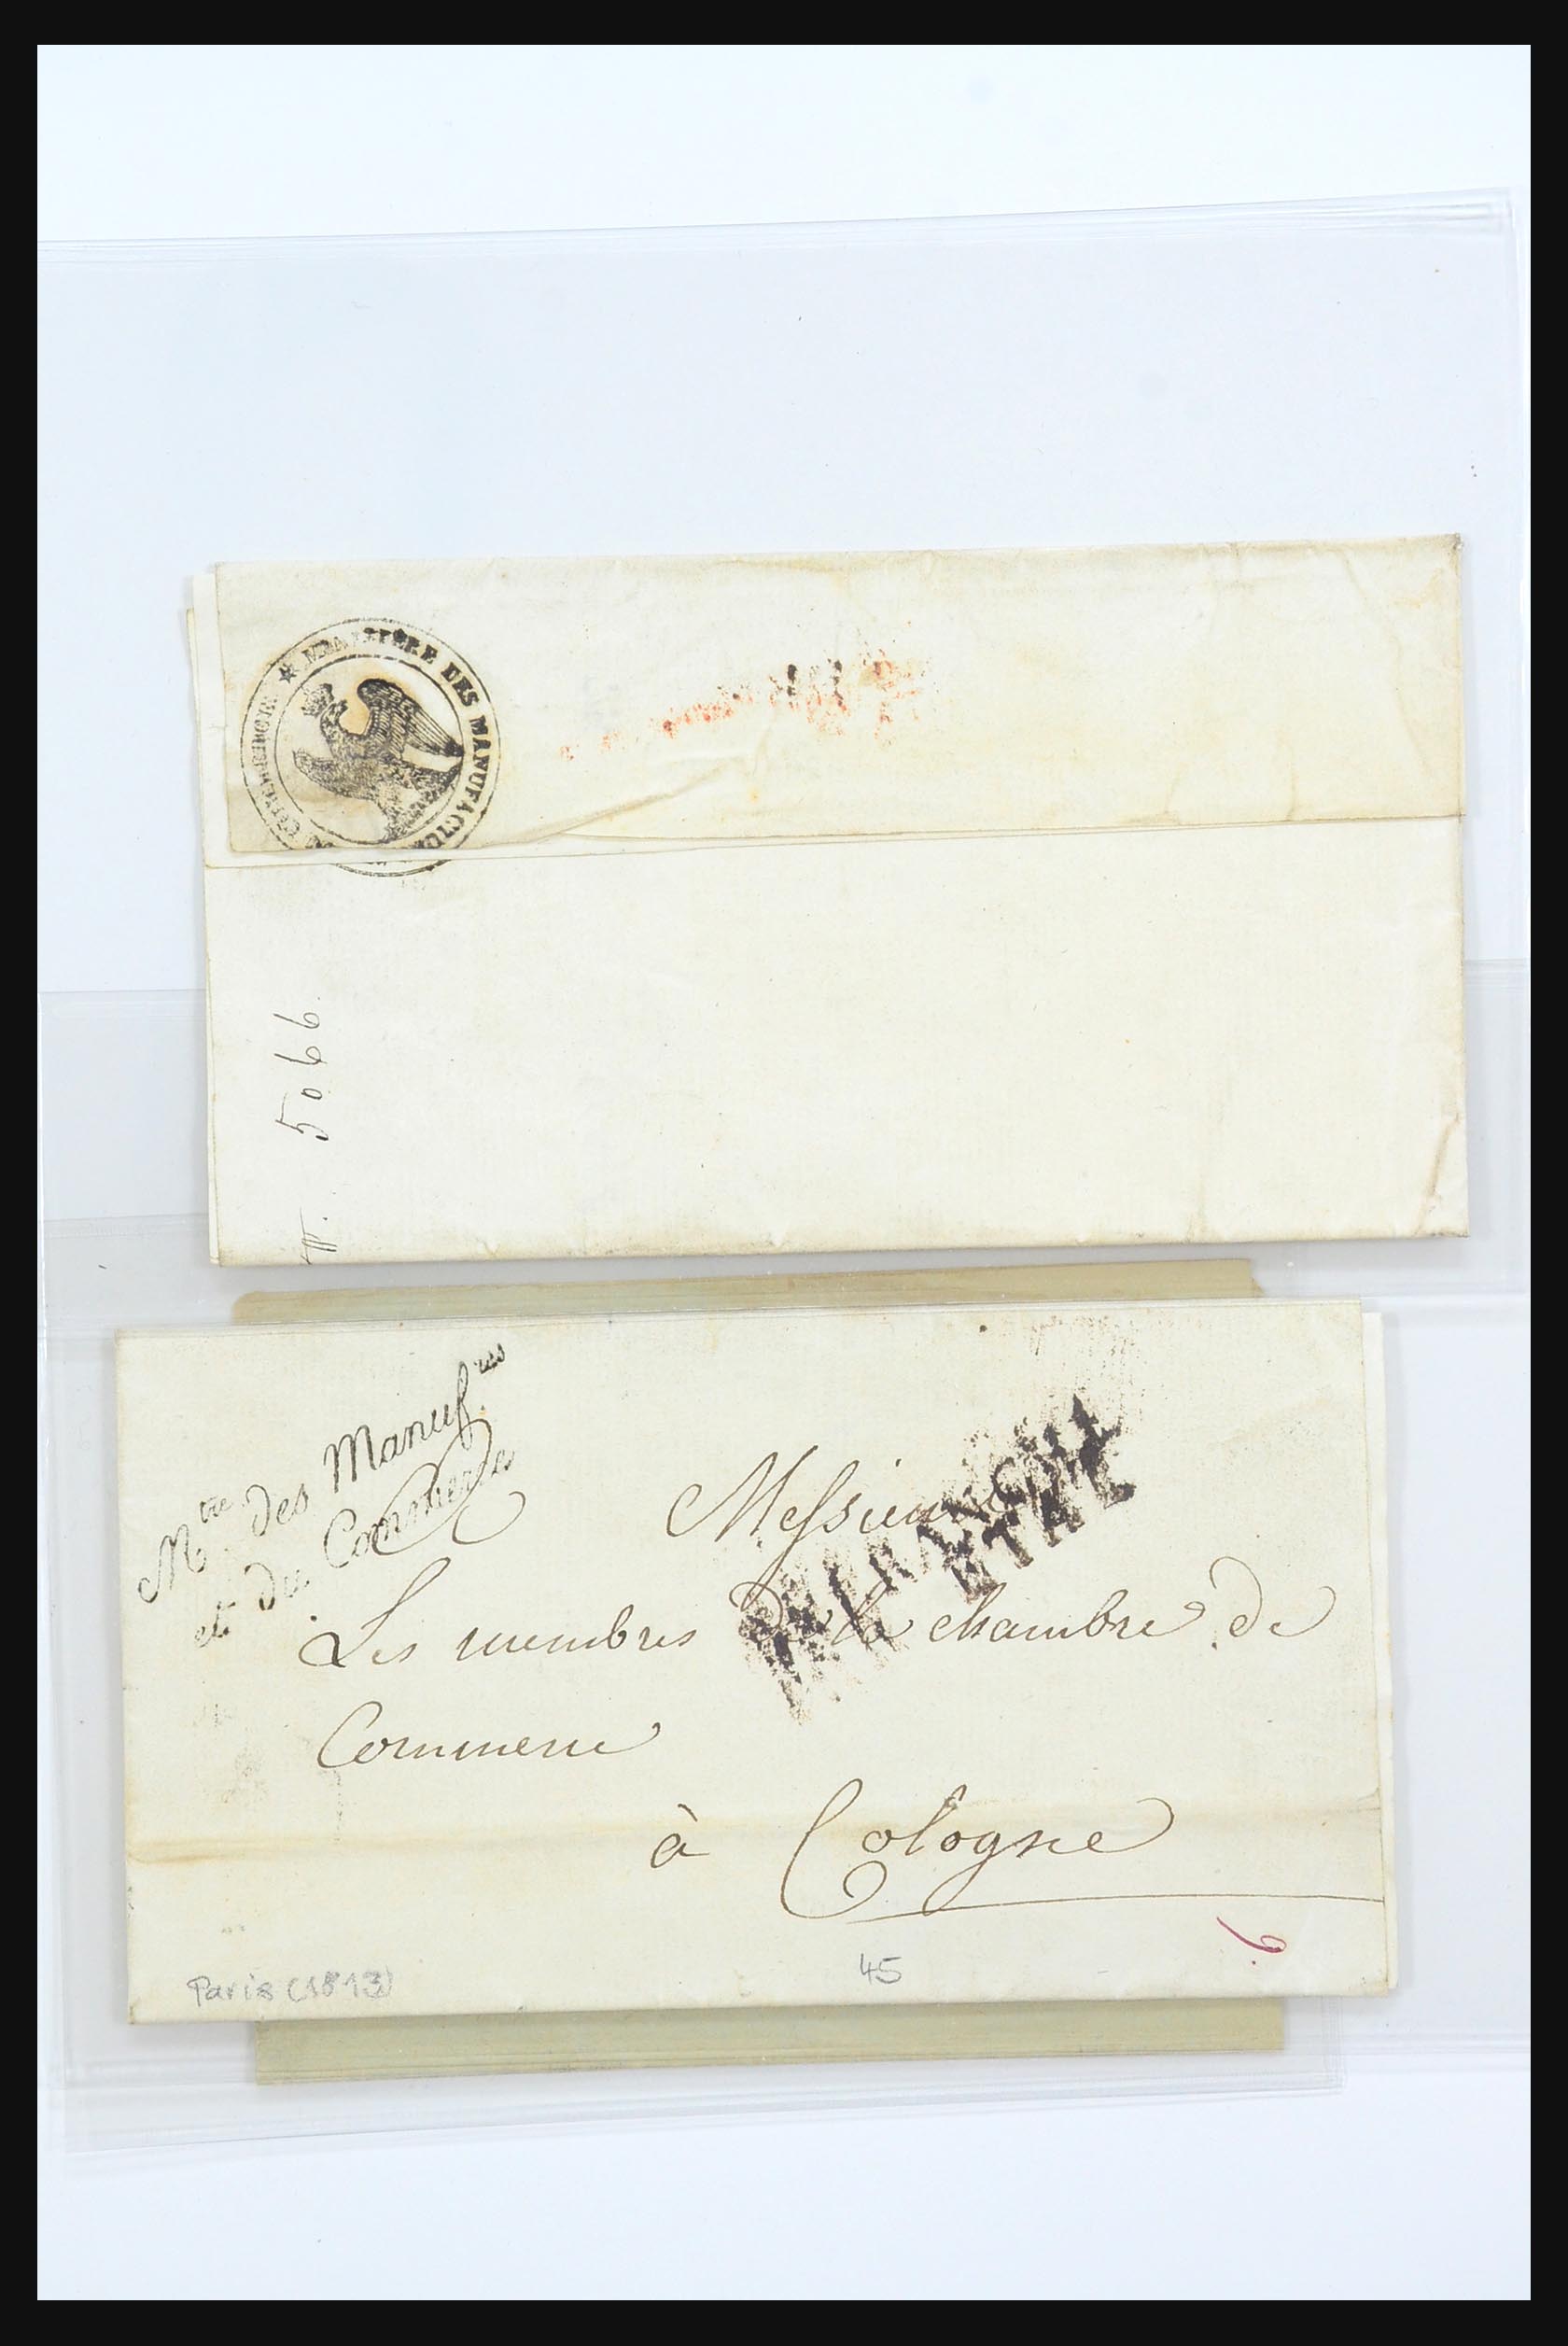 MINISTÈRE DES MANUFACTU
COMMERCE
5066.
M.tre des Manuf.res
et du Commerce
Messieurs
Les membres de la chambre de
Commerce
à Cologne
ETAT
6
45
Paris (1813)